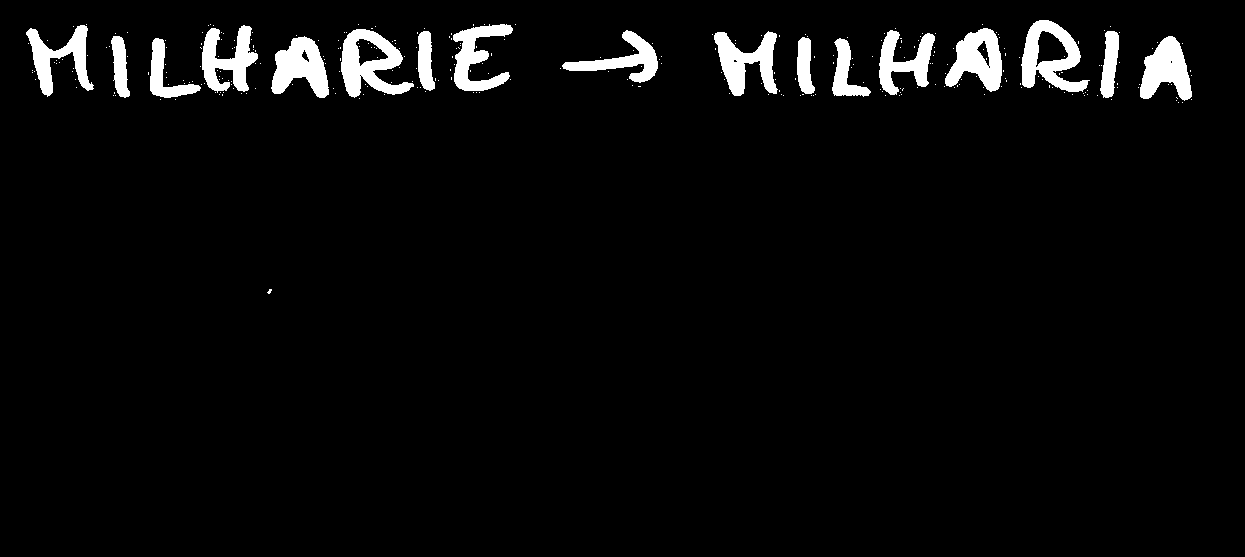 MILHARIE → MILHARIA